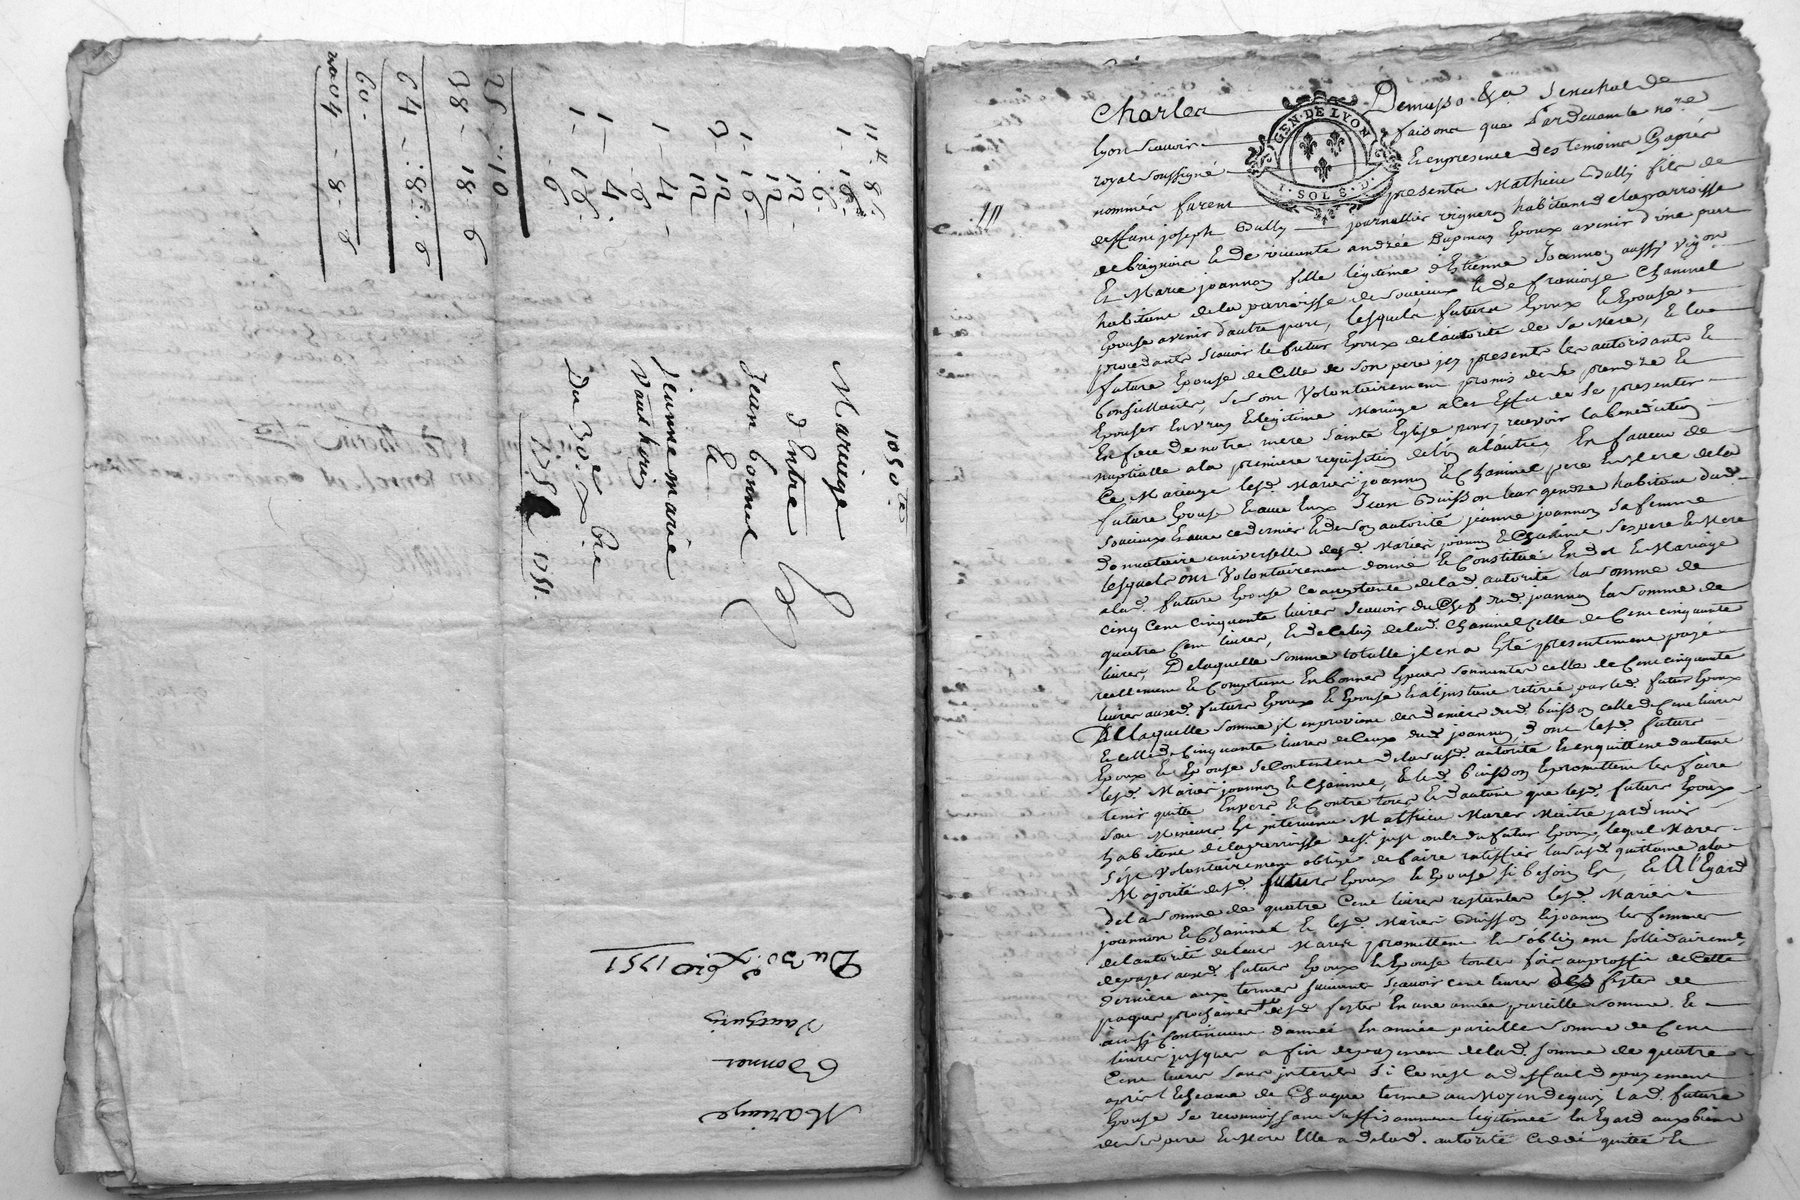 11# 8s
1 - 16
1 - 12
1 - 16
2 - 12
1 - 4
1 - 16
25 - 10
38 - 18 - 6
64 - 8 - 6
60
2004 - 8 - 6
1050te
Mariage
d'Entre
Jean bonnet
&
Jeanne marie
Vauthery
Du 30e Xbre
1751.
Du 30e Xbre 1751
Vautheris
Bonnet
Mariage
GEN. DE LYON
1. SOL 8. D.
Charles Demasso &a Senechal de
Lyon Scavoir faisons que Pardevant le nore
royal soussigné Et en presence des temoins Cy aprés
nommés furent presents Mathieu Bally fils de
deffunt joseph Bally journallier vigneron habitant de la parroisse
de brignais Et de vivante andrée Dupinay Epoux avenir d'une part
Et Marie joannon fille légitime d'Etienne Joannon aussy vigon
habitant de la parroisse de Soucieux Et de francoise Chaminel
Epouse avenir d'autre part, lesquels futurs Epoux Et Epouse
procedants Scavoir le futur Epoux de l'autorité de Sa Mere, Et la
future Epouse de Celle de Son pere icy presents les autorisants Et
Conseillants, se sont Volontairement promis de se prendre Et
Epouser En vray Et legitime Mariage a cet Effet de Se presenter
En face de notre mere Sainte Eglise pour y recevoir la benediction
nuptialle a la premiere requisition de l'un a l'autre, En faveur de
Ce Mariage lesd. Mariés joannon Et Chaminel pere Et Mere de la
future Epouse Et avec Eux Jean Buisson leur gendre habitant dud.
Soucieux Et avec ce dernier Et de Son autorité jeanne joannon Sa femme
donnataire universelle desd. Mariés joannon Et Chaminel Ses pere Et Mere
lesquels ont Volontairement donné Et Constitué En dot Et Mariage
a lad. future Epouse ce acceptante de lad. autorité la Somme de
cinq Cent cinquante livres Scavoir du Chef dud. joannon la Somme de
quatre Cent livres, Et de Celuy de lad. Chaminel celle de Cent cinquante
livres, De laquelle Somme totalle il en a Eté presentement payé
reellement Et Comptant En bonnes Especes Sonnantes celle de Cent cinquante
livres auxd. futurs Epoux Et Epouse Et a l'instant retirée par led. futur Epoux
De laquelle Somme il en provient des deniers dud. buisson celle de Cent livres
Et celle de Cinquante livres de Ceux dud. joannon, dont lesd. futurs
Epoux Et Epouse Se Contentent de lad. autorité Et en quittent d'autant
lesd. Mariés joannon Et Chaminel, Et led. buisson Et promettent les faire
tenir quitte Envers Et Contre tous Et d'autant que lesd. futurs Epoux
Sont Mineurs Est intervenu Mathieu Mares Maitre jardinier
habitant de la parroisse de St. just oncle du futur Epoux lequel Mares
S'est Volontairement obligé de faire ratiffier lad. quittance a la
Majorité desd. futurs Epoux Et Epouse Si besoin Est, Et A l'Egard
de la Somme de quatre Cent livres restantes lesd. Mariés
joannon Et Chaminel Et lesd. Mariés Buisson Et joannon les femmes
de l'autorité de leurs Maris promettent Et S'obligent Sollidairement
de payer auxd. futurs Epoux Et Epouse toutte fois au proffit de Cette
derniere aux termes Suivants Scavoir cent livres des fêtes de
paques prochaines desd. fêtes En une année pareille Somme Et
ainsi Continuant d'année En année pareille Somme de Cent
livres jusques a fin de payement de lad. Somme de quatre
Cent livres Sans interets Si Ce n'est a deffaut de payement
aprés l'Echeance de Chaque terme au Moyen de quoy lad. future
Epouse Se reconnoissant Suffisamment légitimée En Egard aux biens
de Ses pere Et Mere Elle a de lad. autorité Cedé quitté Et